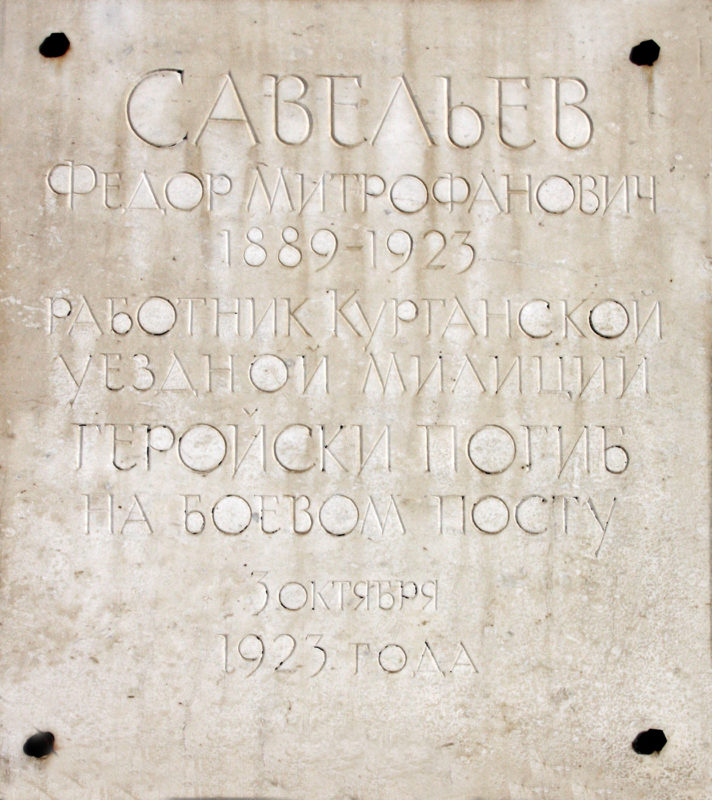 САВЕЛЬЕВ
ФЕДОР МИТРОФАНОВИЧ
1889-1923
РАБОТНИК КУРГАНСКОЙ
УЕЗДНОЙ МИЛИЦИИ
ГЕРОЙСКИ ПОГИБ
НА БОЕВОМ ПОСТУ
3 ОКТЯБРЯ
1923 ГОДА